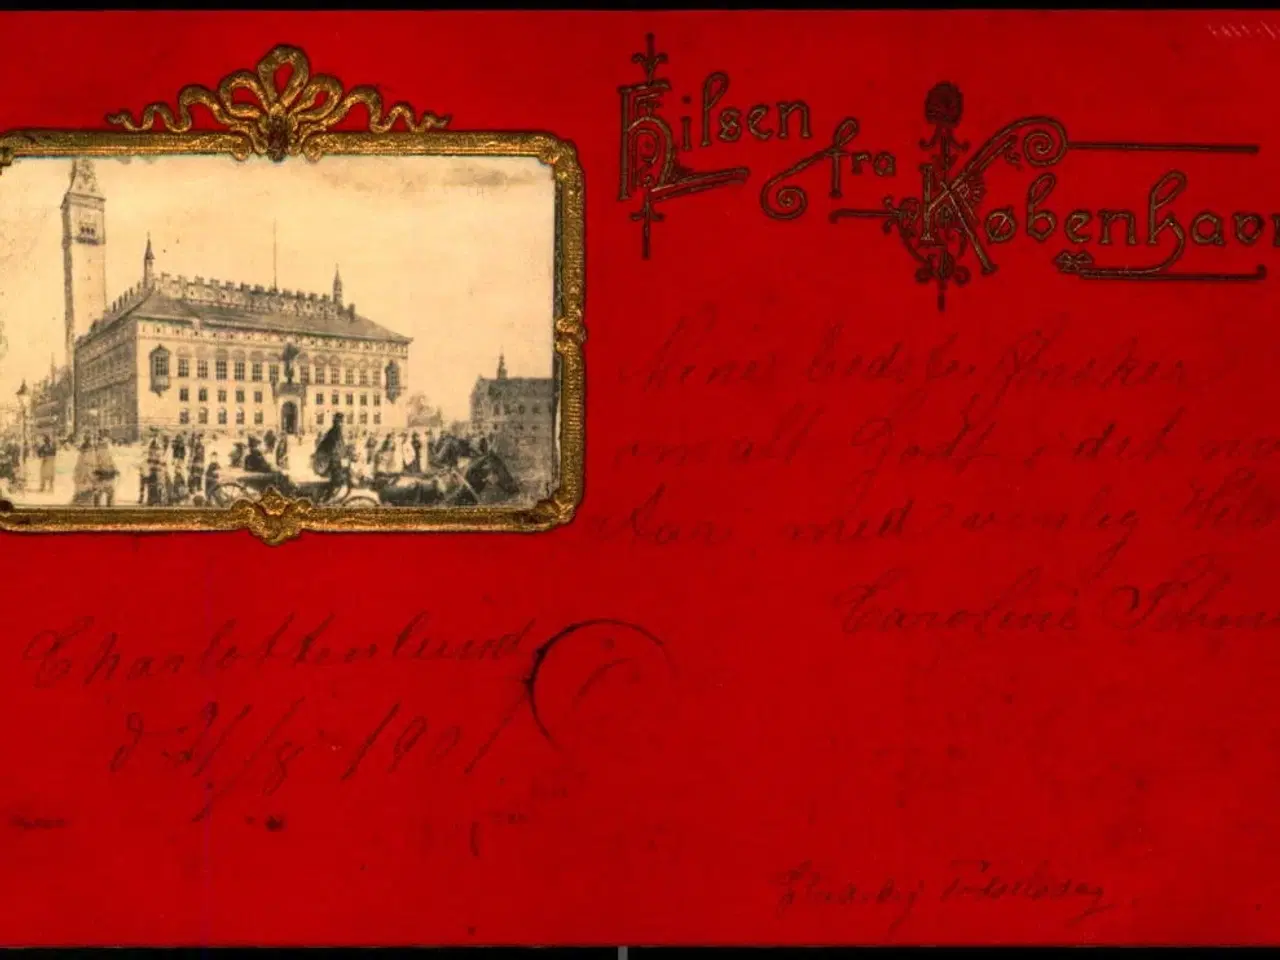 Hilsen
fra
København
Mine bedste Ønsker
om alt Godt i det
Aar, med venlig
Caroline
Charlottenlund
d 21/8 1901.
Fødselsdag